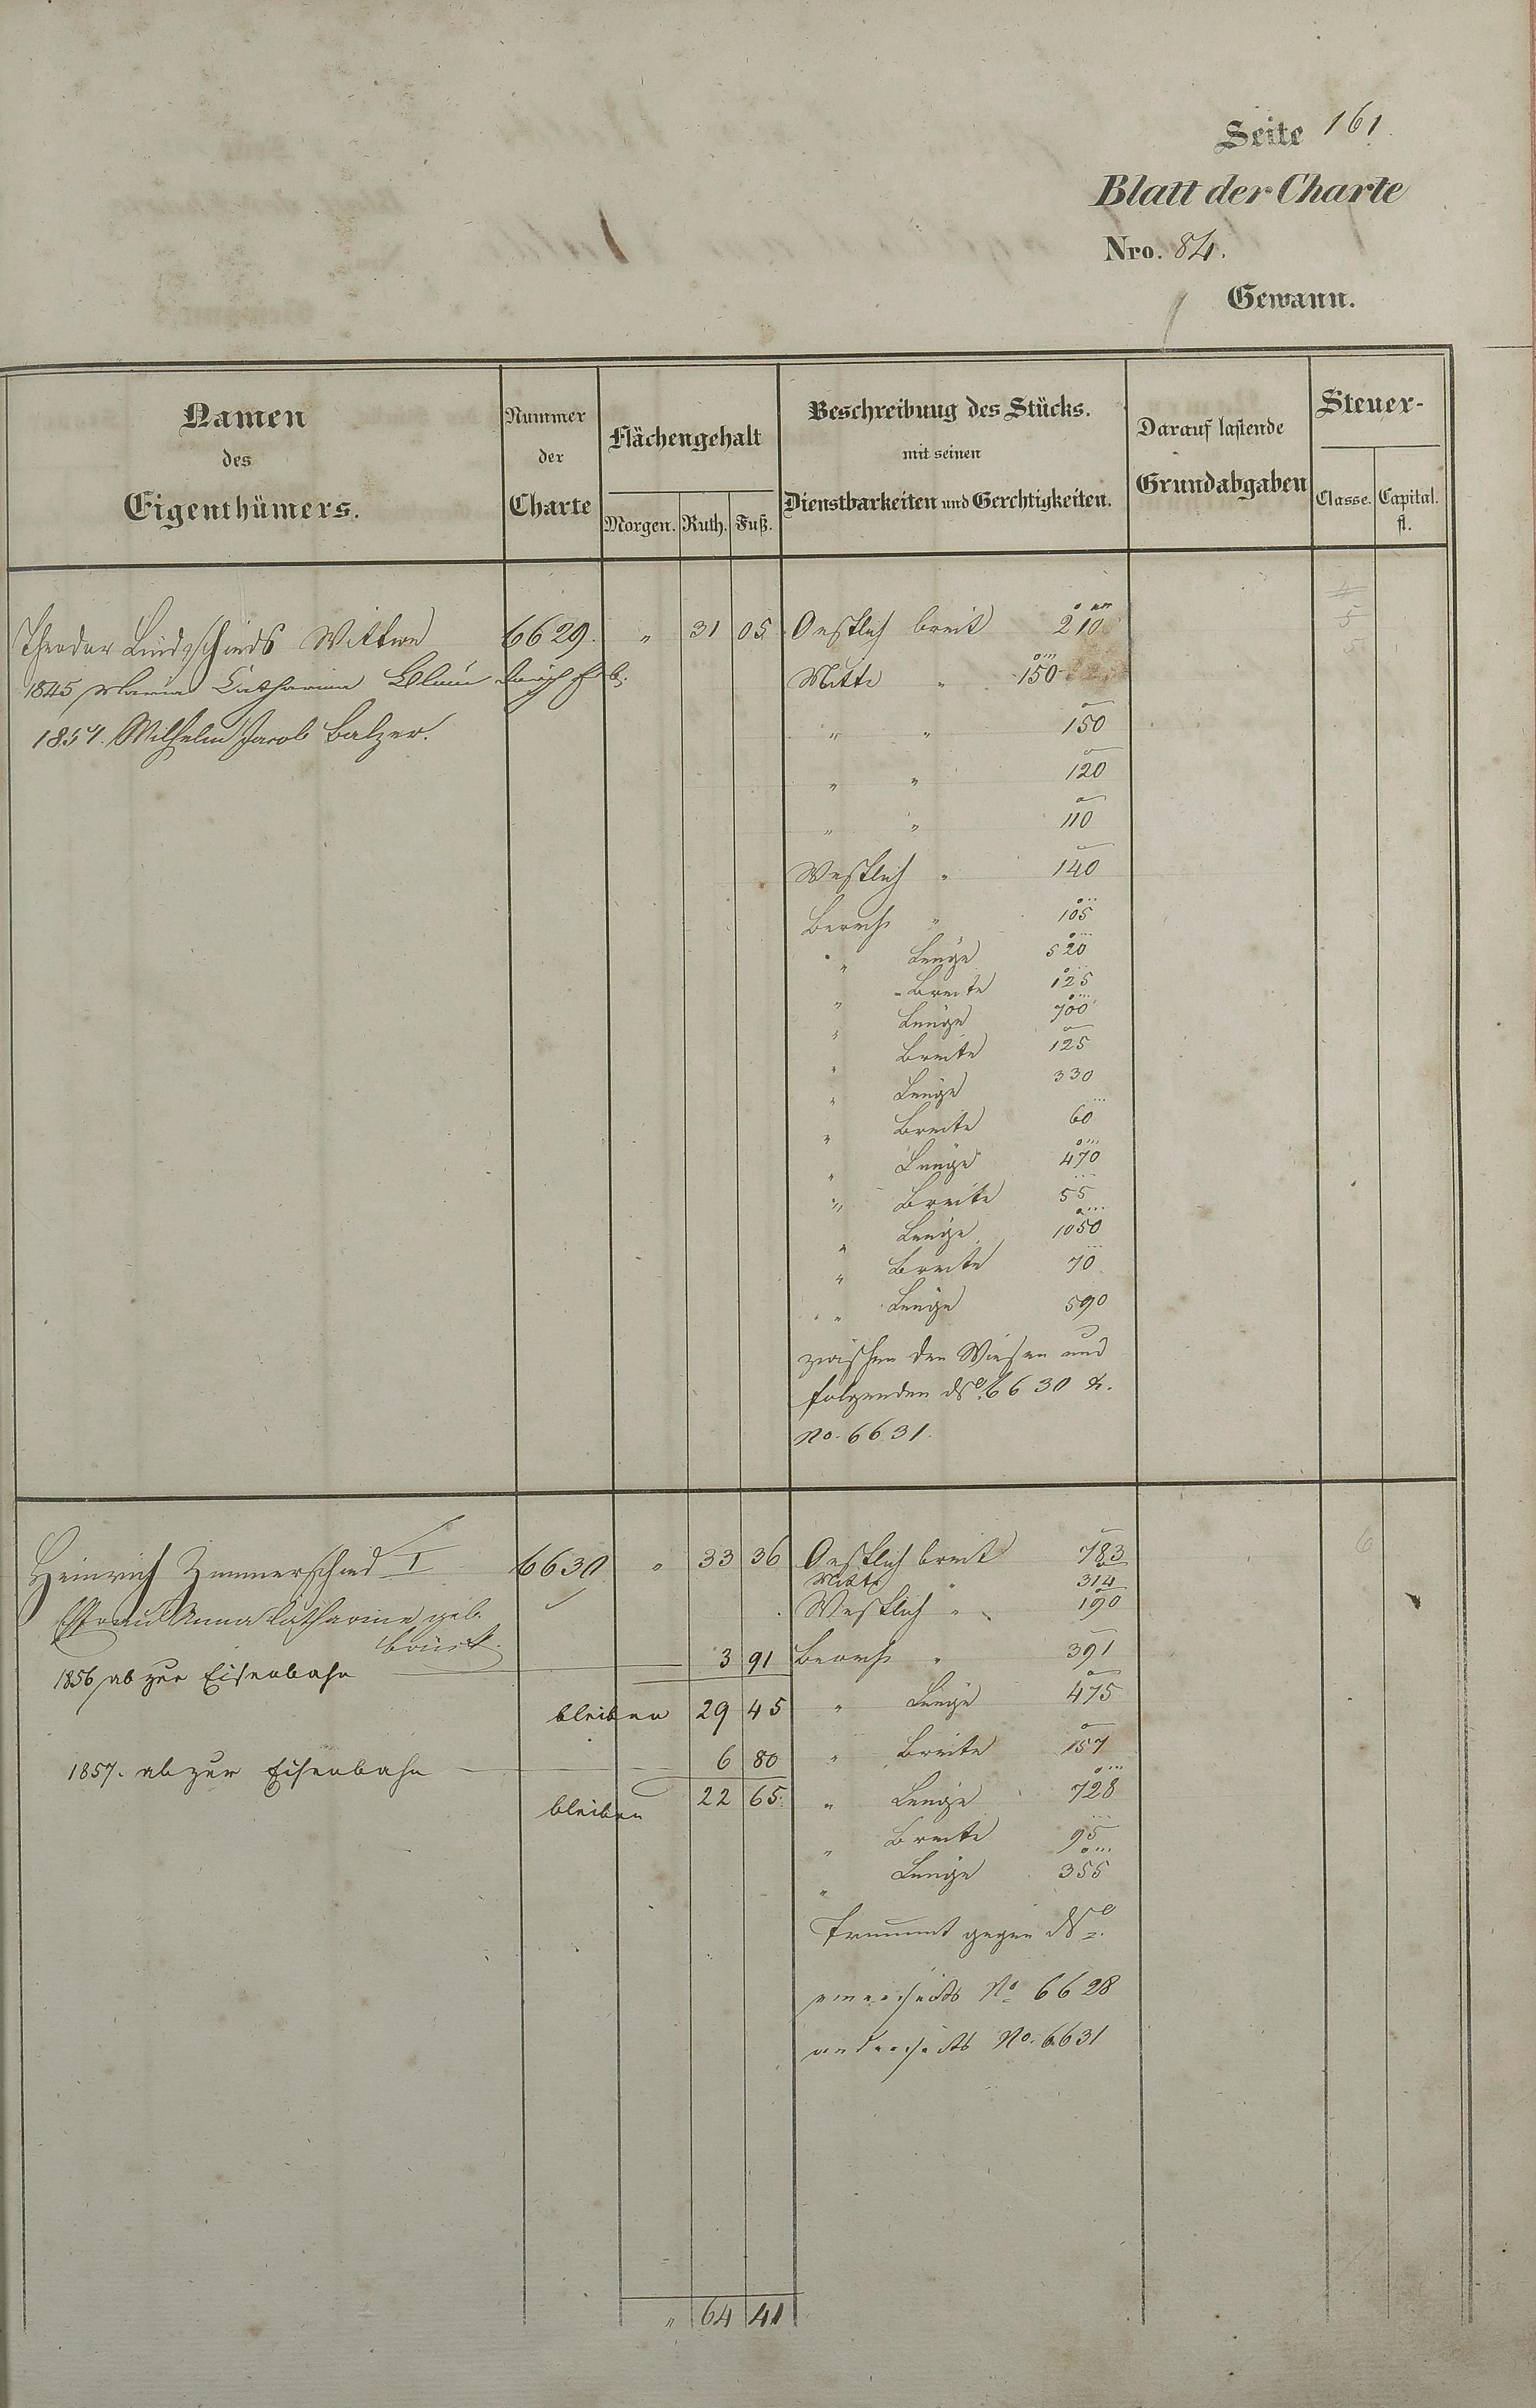 Seite 161.
Blatt der Charte
Nro. 84.
Gewann.
Namen des Eigenthümers.
Nummer der Charte
Flächengehalt
Morgen. Ruth. Fuß.
Beschreibung des Stücks.
mit seinen
Dienstbarkeiten und Gerchtigkeiten.
Darauf lastende
Grundabgaben
Steuer-
Classe. Capital. fl.
Theodor Wittwe 6629. " 31 05 Oestlich breit 210
1845 Maria Catharina Mitte " 150
1854. Wilhelm Jacob Balzer. " " 150
" " 120
" " 110
Westlich " 140
Berech " 105
" Länge 520
" Breite 125
" Länge 700
" Breite 125
" Länge 330
" Breite 60
" Länge 470
" Breite 55
" Länge 1050
" Breite 70
" Länge 590
zwischen den Wiesen und
folgenden 6630 &.
No. 6631.
Heinrich Zimmerschied I 6630 " 33 36 Oestlich breit 783
Mitte " 314
Frau Anna Catharine geb. Westlich " 190
1856 ab zur Eisenbahn 3 91 Berech " 391
bleiben 29 45 " Länge 475
1857. ab zur Eisenbahn 6 80 " Breite 157
bleiben 22 65 " Länge 728
" Breite 95
" Länge 355
gegen
einerseits No 6628
anderseits No. 6631
" 64 41